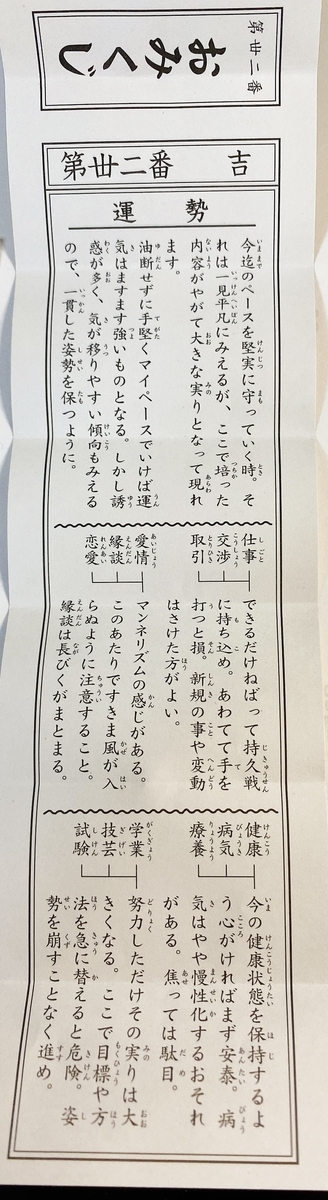 第卅二番
おみくじ
第卅二番 吉
運勢
今迄のペースを堅実に守っていく時。そ
れは一見平凡にみえるが、ここで培った
内容がやがて大きな実りとなって現れ
ます。
油断せずに手堅くマイペースでいけば運
気はますます強いものとなる。しかし誘
惑が多く、気が移りやすい傾向もみえる
ので、一貫した姿勢を保つように。
仕事
交渉
取引
できるだけねばって持久戦
に持ち込め。あわてて手を
打つと損。新規の事や変動
はさけた方がよい。
愛情
縁談
恋愛
マンネリズムの感じがある。
このあたりですきま風が入
らぬように注意すること。
縁談は長びくがまとまる。
健康
病気
療養
今の健康状態を保持するよ
う心がければまず安泰。病
気はやや慢性化するおそれ
がある。焦っては駄目。
学業
技芸
試験
努力しただけその実りは大
きくなる。ここで目標や方
法を急に替えると危険。姿
勢を崩すことなく進め。